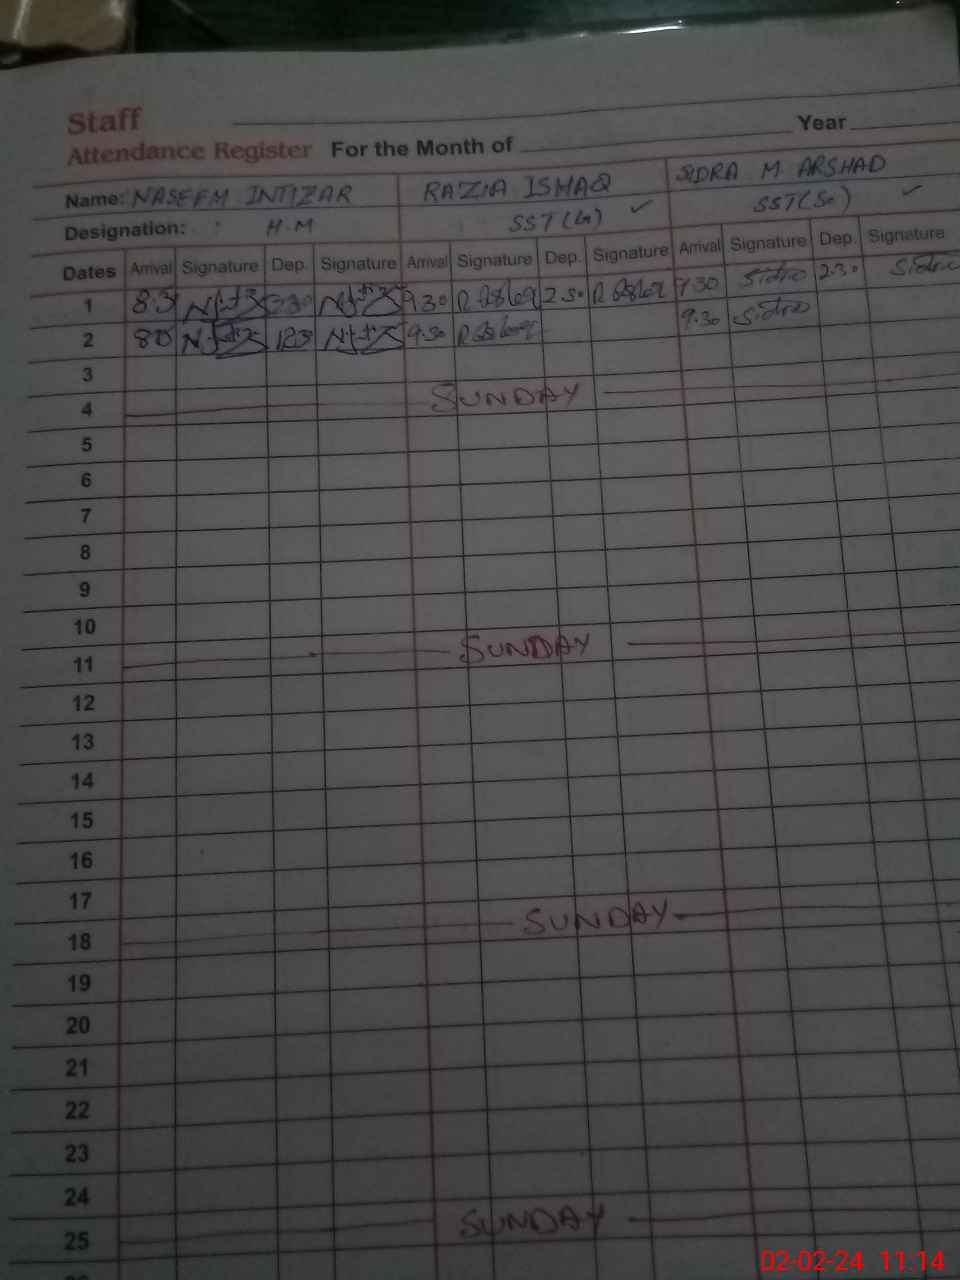 Staff
Attendance Register For the Month of Year
Name: NASEEM INTIZAR RAZIA ISHAQ SIDRA M ARSHAD
Designation: H.M SST( ) SST(Sc)
Dates Arrival Signature Dep. Signature Arrival Signature Dep. Signature Arrival Signature Dep. Signature
1 8.3 9.30 2.30 Sidra 2.30 Sidra
2 9.30 9.30 Sidra
3
SUNDAY
4
5
6
7
8
9
10
SUNDAY
11
12
13
14
15
16
17
SUNDAY
18
19
20
21
22
23
24
SUNDAY
25
02-02-24 11:14